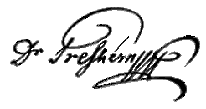 Dr Preshérn